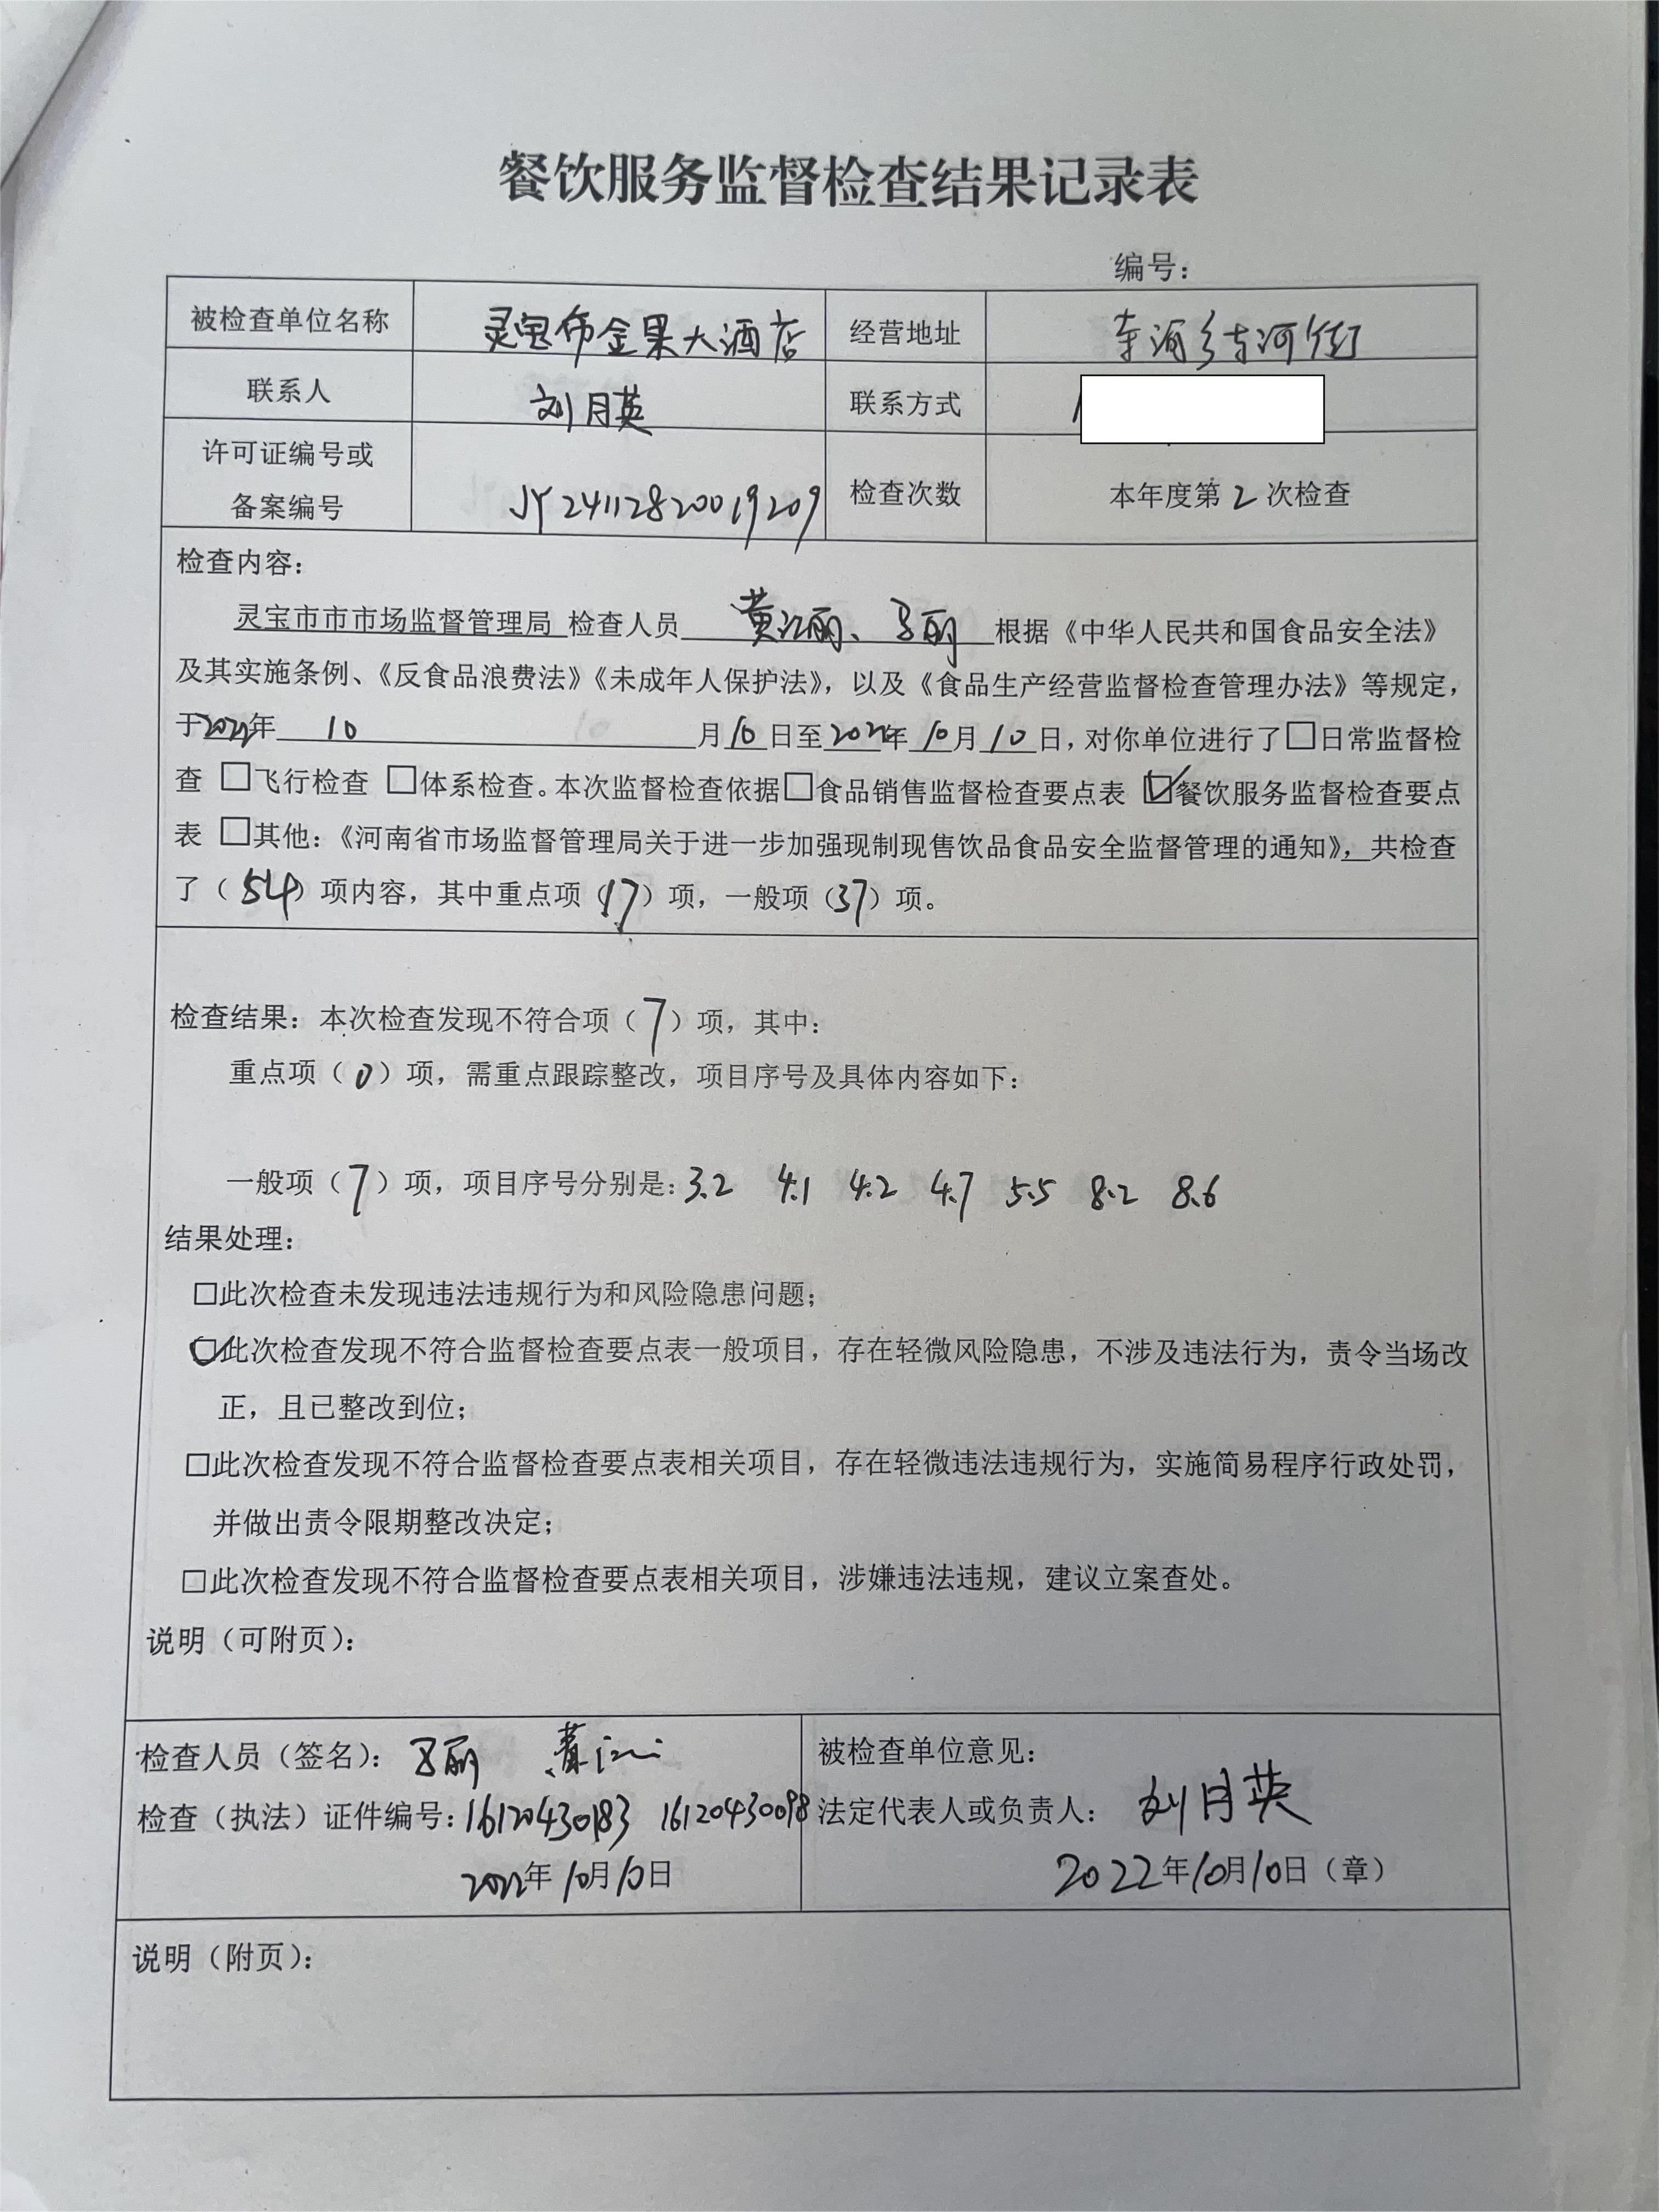 餐饮服务监督检查结果记录表
编号：
被检查单位名称 灵宝市金果大酒店 经营地址 寺河乡寺河街
联系人 刘月英 联系方式
许可证编号或
备案编号 JY24112820019209 检查次数 本年度第2次检查
检查内容：
灵宝市市市场监督管理局 检查人员 黄江丽、马丽 根据《中华人民共和国食品安全法》
及其实施条例、《反食品浪费法》《未成年人保护法》，以及《食品生产经营监督检查管理办法》等规定，
于2022年 10 月10日至2022年10月10日，对你单位进行了□日常监督检
查 □飞行检查 □体系检查。本次监督检查依据□食品销售监督检查要点表 ☑餐饮服务监督检查要点
表 □其他：《河南省市场监督管理局关于进一步加强现制现售饮品食品安全监督管理的通知》，共检查
了（54）项内容，其中重点项（17）项，一般项（37）项。
检查结果：本次检查发现不符合项（7）项，其中：
重点项（0）项，需重点跟踪整改，项目序号及具体内容如下：
一般项（7）项，项目序号分别是：3.2 4.1 4.2 4.7 5.5 8.2 8.6
结果处理：
□此次检查未发现违法违规行为和风险隐患问题；
☑此次检查发现不符合监督检查要点表一般项目，存在轻微风险隐患，不涉及违法行为，责令当场改
正，且已整改到位；
□此次检查发现不符合监督检查要点表相关项目，存在轻微违法违规行为，实施简易程序行政处罚，
并做出责令限期整改决定；
□此次检查发现不符合监督检查要点表相关项目，涉嫌违法违规，建议立案查处。
说明（可附页）：
检查人员（签名）：马丽 黄江
检查（执法）证件编号：16120430183 16120430098
2022年10月10日
被检查单位意见：
法定代表人或负责人：刘月英
2022年10月10日（章）
说明（附页）：